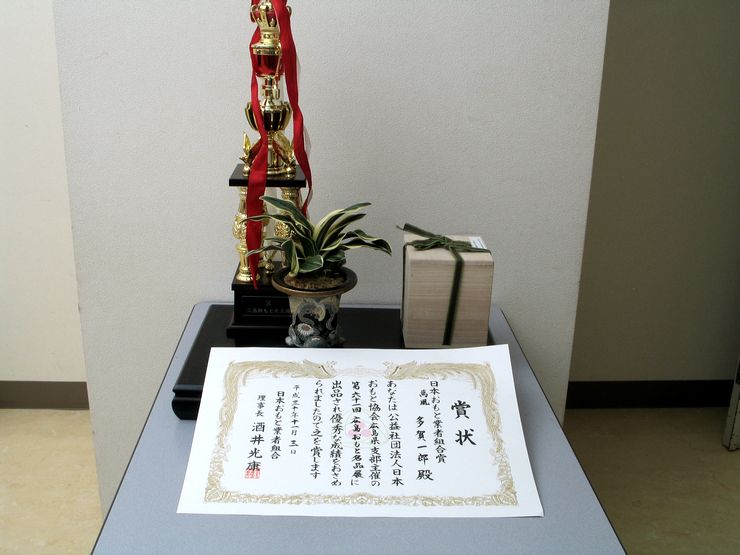 賞状
日本おもと業者組合賞
萬風 多賀一郎 殿
あなたは公益社団法人日本
おもと協会広島県支部主催の
第六十一回広島おもと名品展に
出品され優秀な成績をおさめ
られましたので之を賞します
平成三十年十一月
日本おもと業者組合
理事長 酒井光康